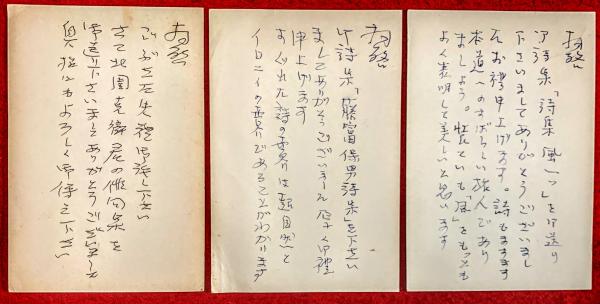 拝啓
御詩集「詩集 風一つ」を御送り
下さいましてありがとうございまし
た お禮申上げます。詩もますます
本道へのすばらしい旅人であり
ましよう。装ていも「風」をもっとも
よく表明して美しいと思います
拝啓
御詩集「藤富保男詩集」を下さい
ましてありがとうございました 厚く御禮
申上げます
すぐれた詩の世界は超自然と
イロニイの世界であることがわかります
拝啓
ごぶさた失禮御許し下さい
さて北園克衛君の俳句集を
御送り下さいましてありがとうございました
奥様にもよろしく御傳え下さい